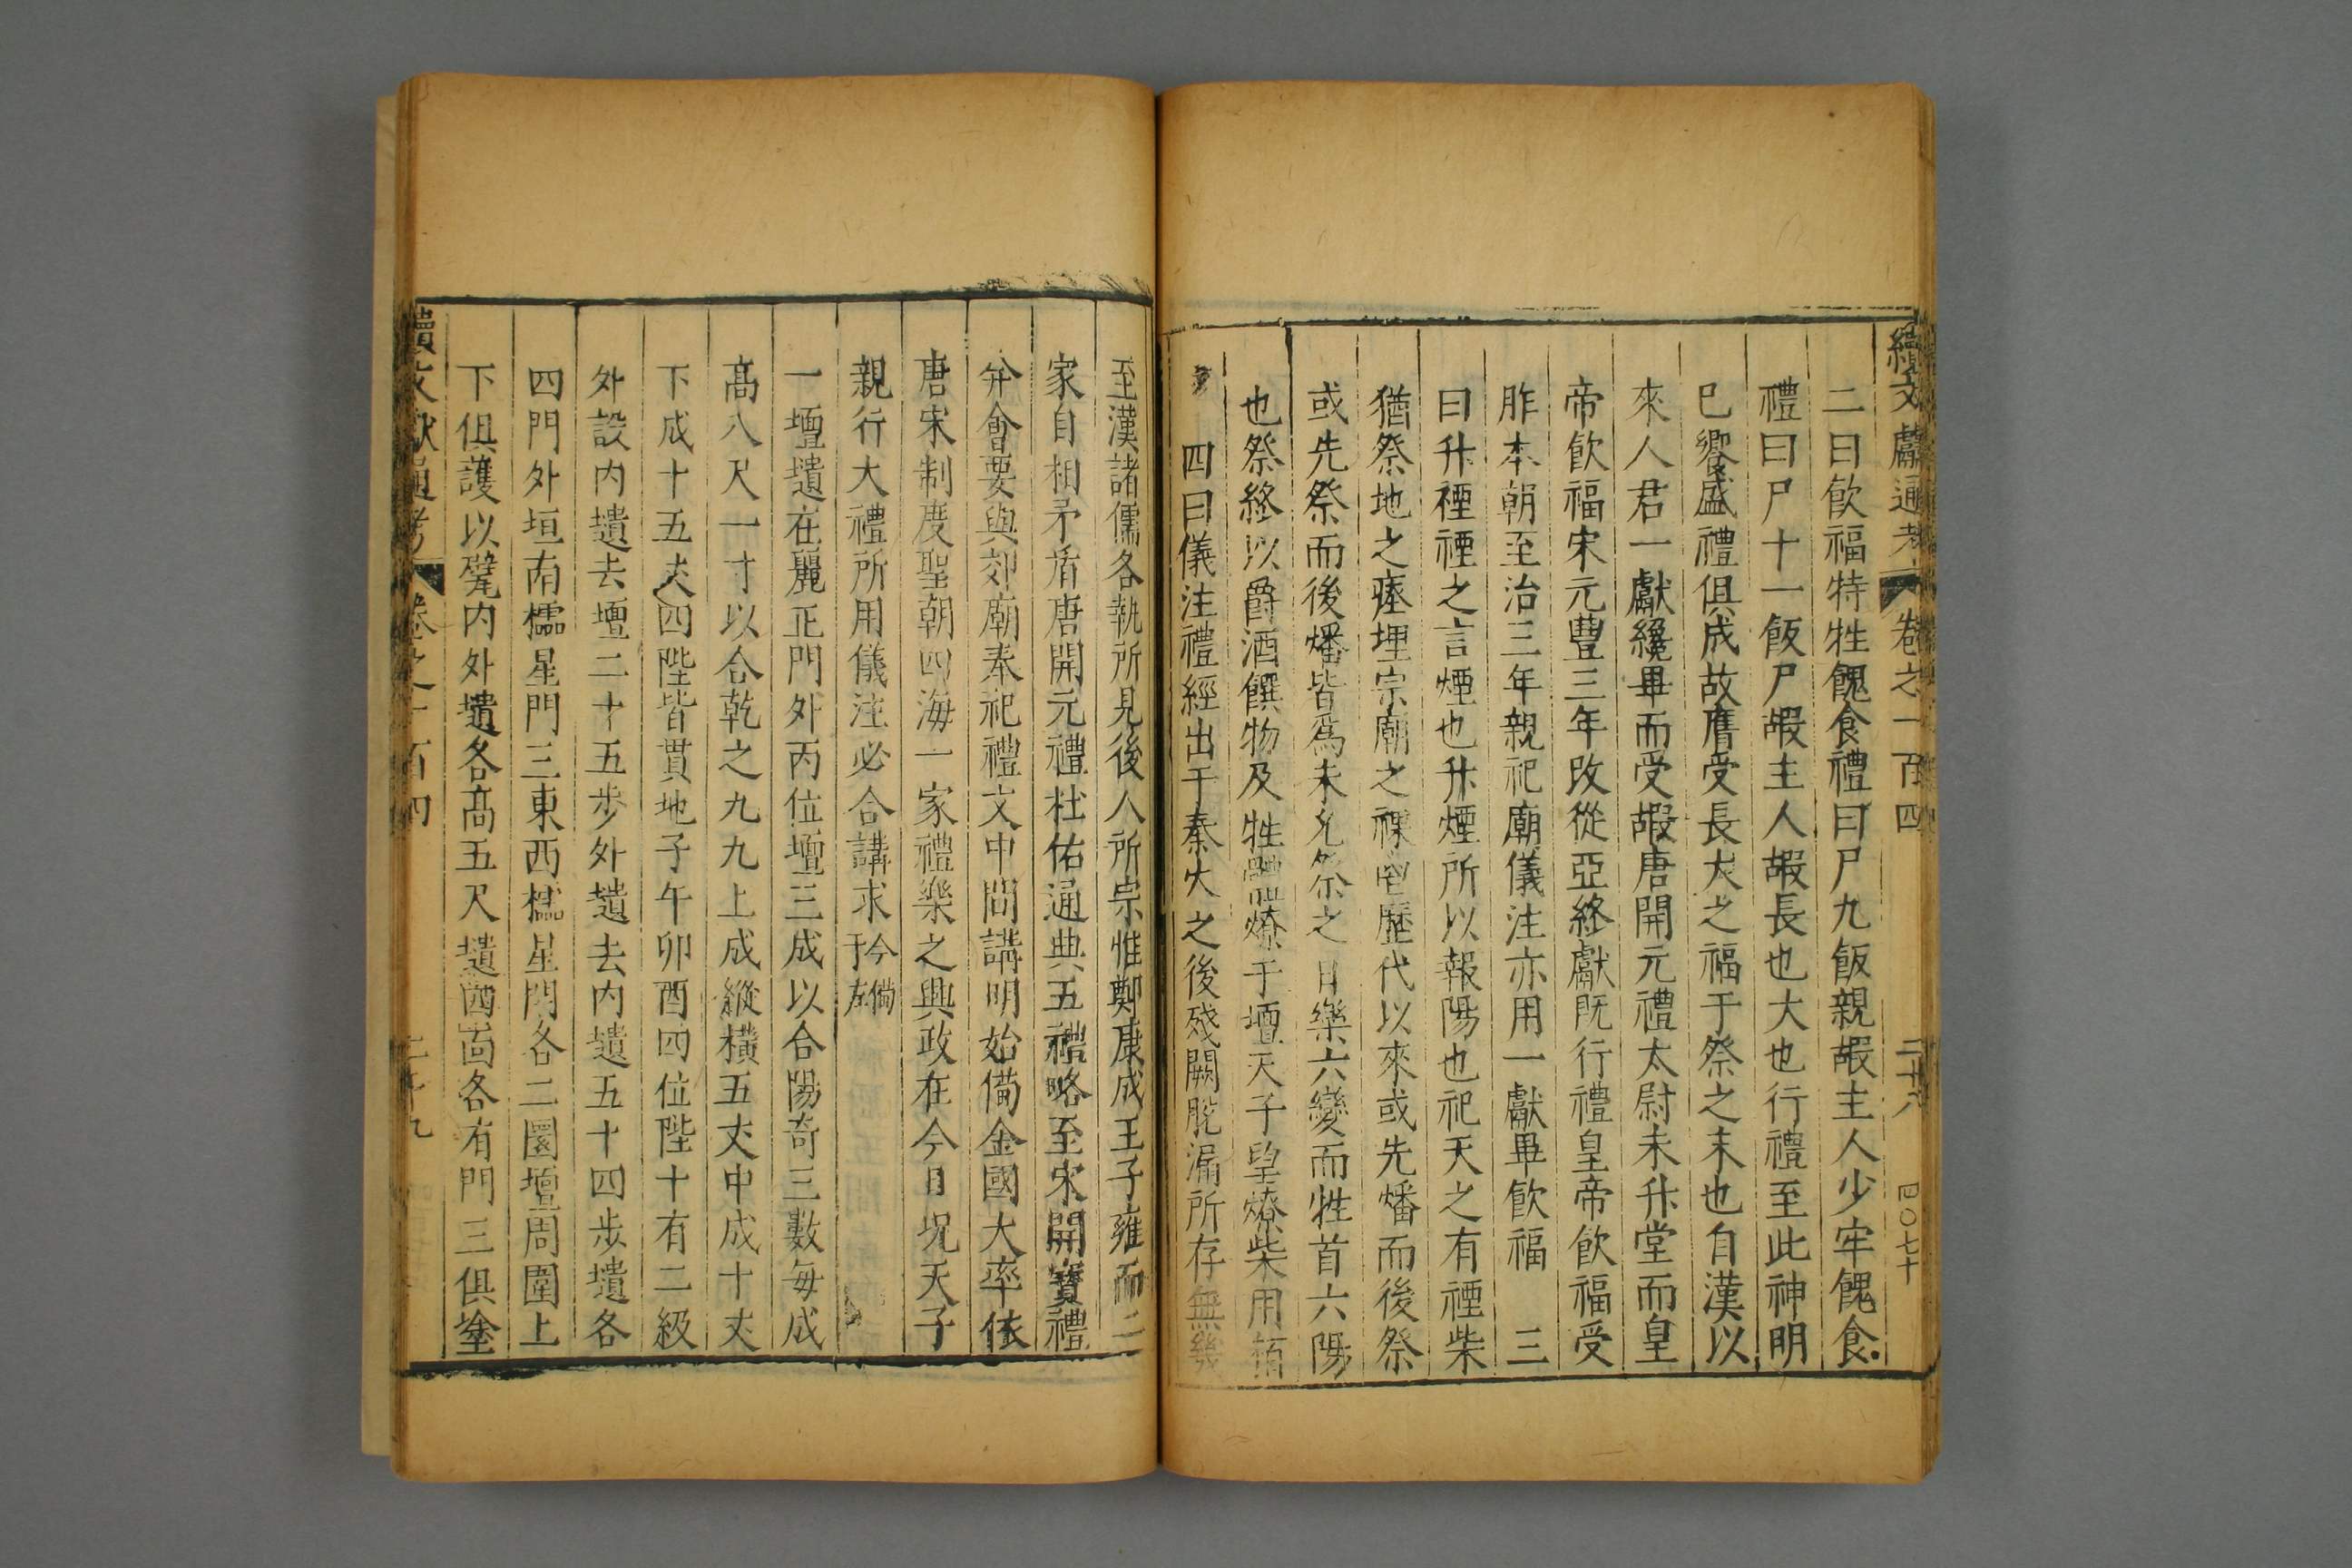 續文獻通考 卷之一百四 二十八 四〇七十
二曰飲福特牲餽食禮曰尸九飯親嘏主人少牢餽食
禮曰尸十一飯尸嘏主人嘏長也大也行禮至此神明
已饗盛禮俱成故膺受長大之福于祭之末也自漢以
來人君一獻纔畢而受嘏唐開元禮太尉未升堂而皇
帝飲福宋元豐三年改從亞終獻既行禮皇帝飲福受
胙本朝至治三年親祀廟儀注亦用一獻畢飲福 三
曰升禋禋之言煙也升煙所以報陽也祀天之有禋柴
猶祭地之瘞埋宗廟之祼鬯歷代以來或先燔而後祭
或先祭而後燔皆爲未允祭之日樂六變而牲首六陽
也祭終以爵酒饌物及牲體燎于壇天子望燎柴用栢
四曰儀注禮經出于秦火之後殘闕脫漏所存無幾
至漢諸儒各執所見後人所宗惟鄭康成王子雍而二
家自相矛盾唐開元禮杜佑通典五禮略至宋開寶禮
并會要與郊廟奉祀禮文中間講明始備金國大率依
唐宋制度聖朝四海一家禮樂之興政在今日況天子
親行大禮所用儀注必合講求今備于左
一壇壝在麗正門外丙位壇三成以合陽奇三數每成
高八尺一寸以合乾之九九上成縱橫五丈中成十丈
下成十五丈四陛皆貫地子午卯酉四位陛十有二級
外設內壝去壇二十五步外壝去內壝五十四步壝各
四門外垣南櫺星門三東西櫺星門各二圜壇周圍上
下俱護以甓內外壝各高五尺壝四面各有門三俱塗
續文獻通考 卷之一百四 二十九